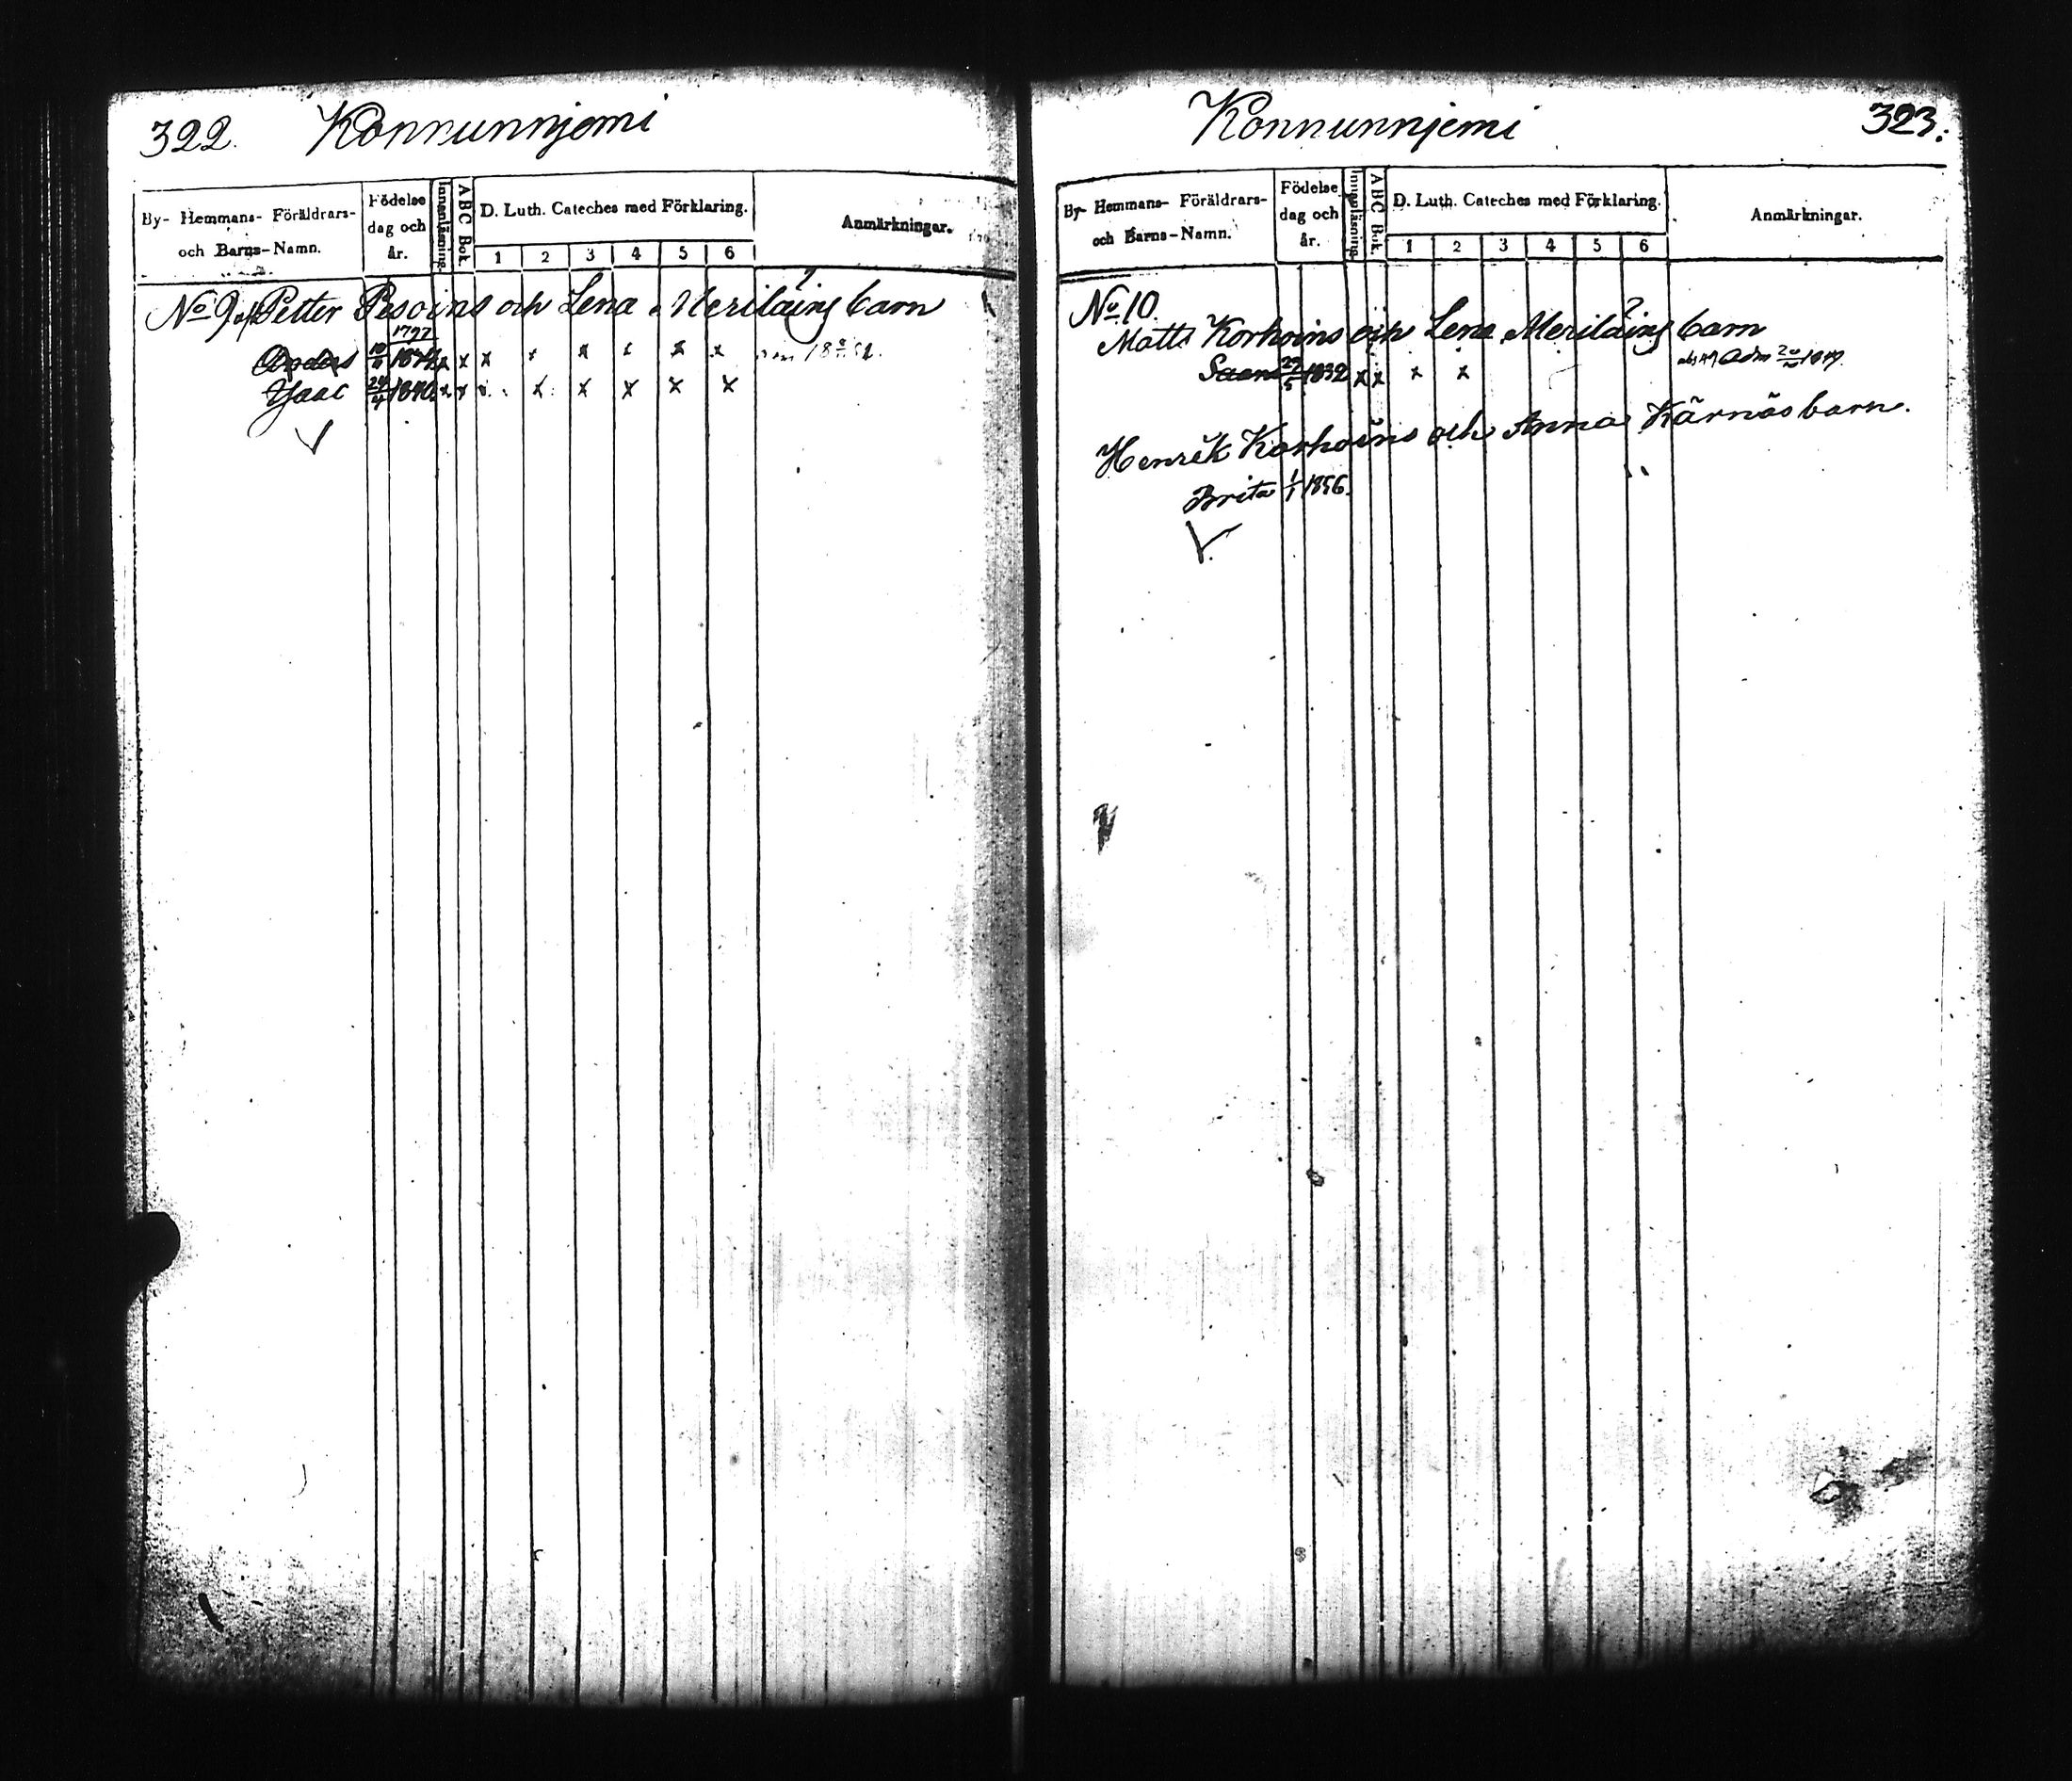 322. Konnunnjemi
By- Hemmans- Föräldrars-
och Barns-Namn.
Födelse
dag och
år.
Innanläsning.
ABC Bok.
D. Luth. Cateches med Förklaring.
1 2 3 4 5 6
Anmärkningar.
No 9 Petter Pesoins och Lena Meriläins barn
1797
Anders x x x x x x x x
Isaac 24/4 1840. x x x x x x x
Konnunnjemi 323.
By- Hemmans- Föräldrars-
och Barns-Namn.
Födelse
dag och
år.
Innanläsning.
ABC Bok.
D. Luth. Cateches med Förklaring.
1 2 3 4 5 6
Anmärkningar.
No. 10.
Matts Korhoins och Lena Meriläins barn
29/5 1832 x x x x Adm
Henrik Korhoins och Anna Kärnäs barn.
Brita 1/1 1856.